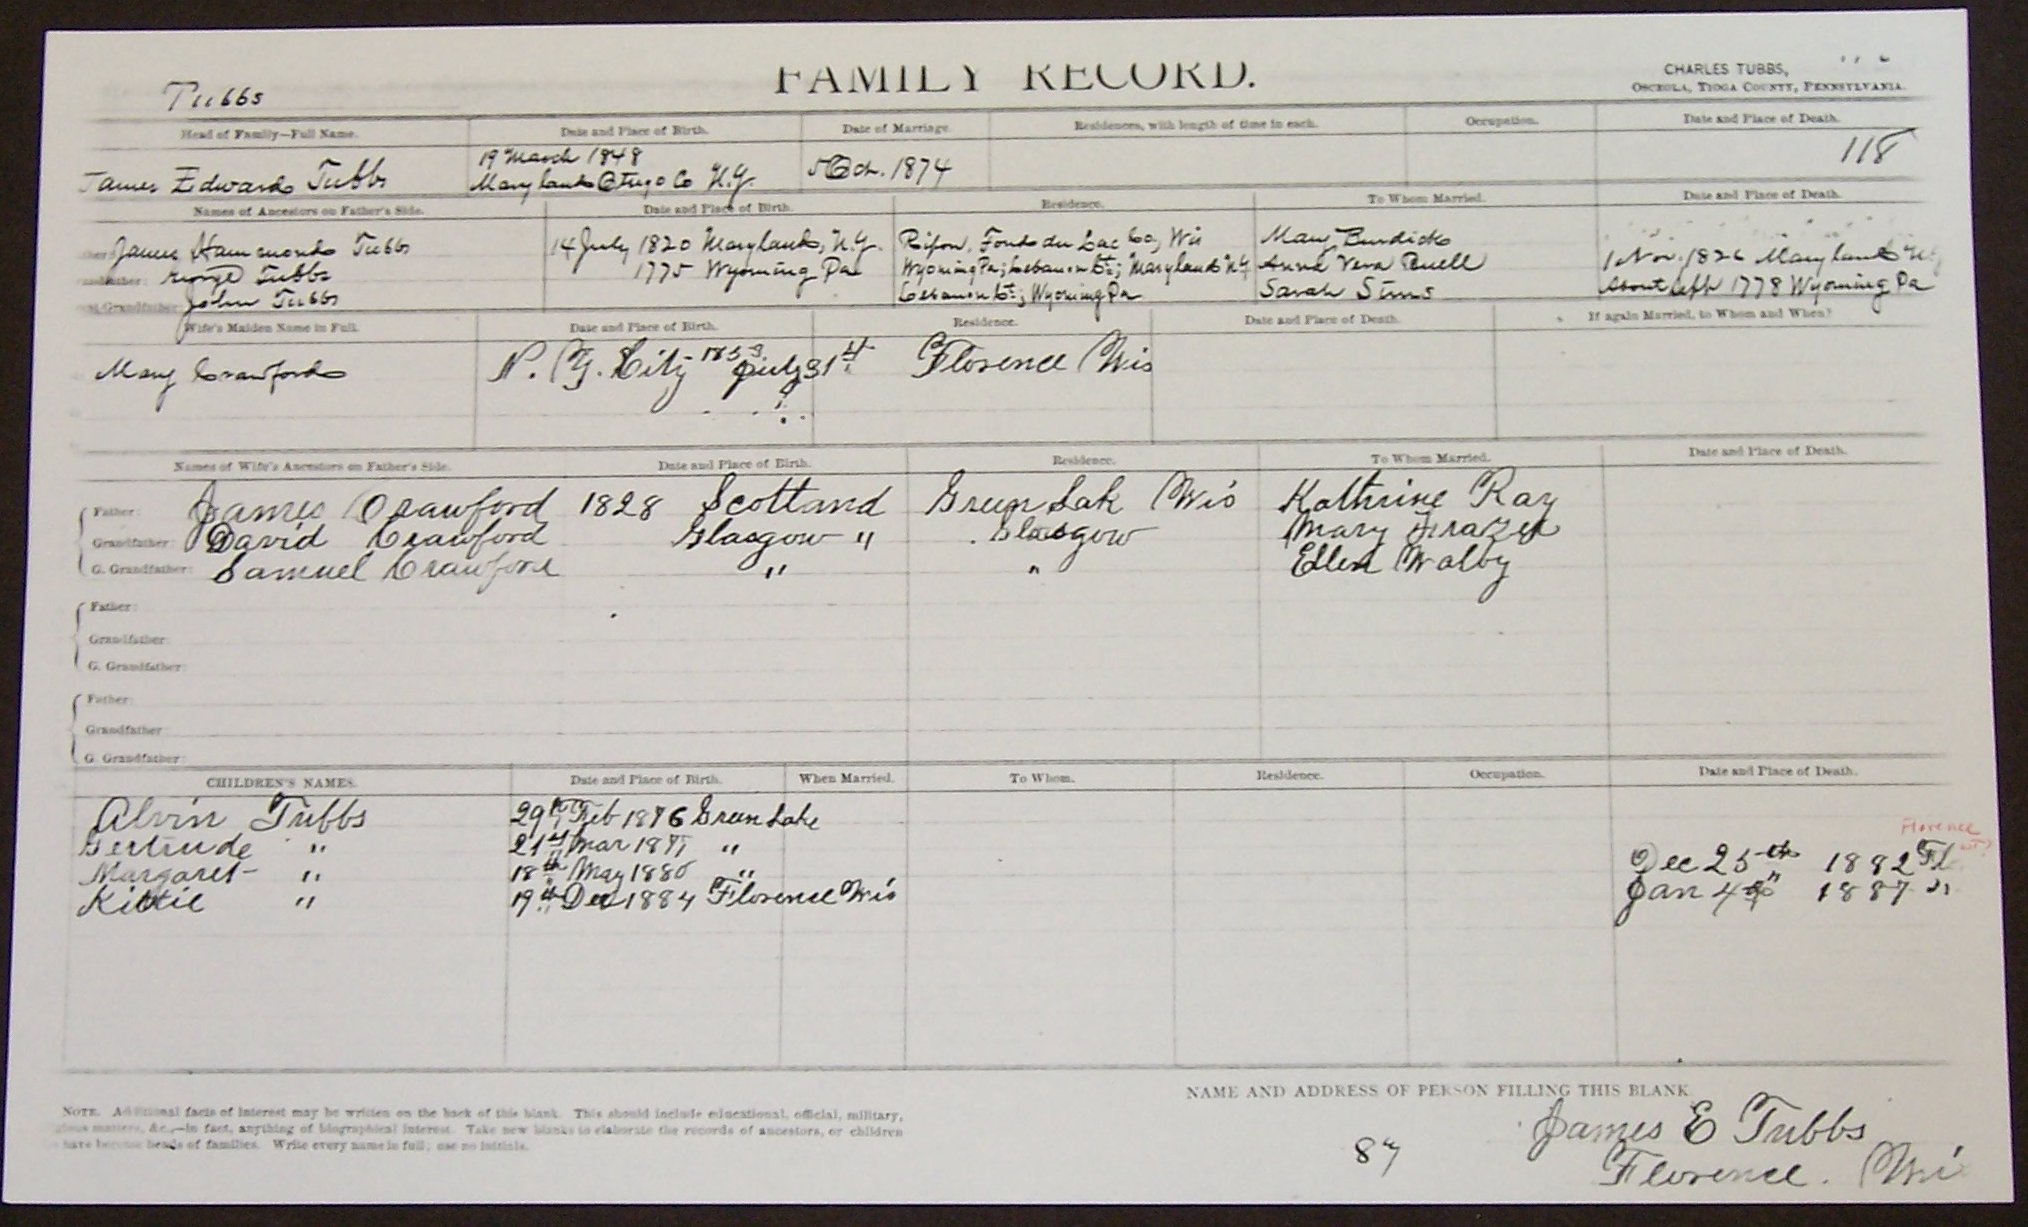 Tubbs
FAMILY RECORD.
CHARLES TUBBS,
OSCEOLA, TIOGA COUNTY, PENNSYLVANIA.
Head of Family—Full Name. Date and Place of Birth. Date of Marriage. Residences, with length of time in each. Occupation. Date and Place of Death.
118
19 March 1848
James Edward Tubbs Maryland Otsego Co N.Y. 5 Oct. 1874
Names of Ancestors on Father's Side. Date and Place of Birth. Residence. To Whom Married. Date and Place of Death.
James Hammond Tubbs 14 July 1820 Maryland, N.Y. Ripon, Fond du Lac Co, Wis Mary Burdick
George Tubbs 1775 Wyoming Pa Wyoming Pa; Lebanon Ct; Maryland N.Y Anna Vera Buell 1 Nov. 1826 Maryland N.Y
G. Grandfather: John Tubbs Lebanon Ct; Wyoming Pa Sarah Sims About Sept 1778 Wyoming Pa
Wife's Maiden Name in Full. Date and Place of Birth. Residence. Date and Place of Death. If again Married, to Whom and When?
Mary Crawford N. Y. City 1853 July 31st Florence Wis
Names of Wife's Ancestors on Father's Side. Date and Place of Birth. Residence. To Whom Married. Date and Place of Death.
Father: James Crawford 1828 Scottland Green Lak Wis Kathrine Ray
Grandfather: David Crawford Glasgow " Glasgow Mary Frazer
G. Grandfather: Samuel Crawford " " Ellen Walby
Father:
Grandfather:
G. Grandfather:
Father:
Grandfather:
G. Grandfather:
CHILDREN'S NAMES. Date and Place of Birth. When Married. To Whom. Residence. Occupation. Date and Place of Death.
Alvin Tubbs 29th Feb 1876 Green Lake
Florence
Gertrude " 21st Mar "
Margaret " 18th May 1880 " Dec 25th 1882 Flo
Kittie " 19th Dec 1884 Florence Wis Jan 4th 1887 "
NAME AND ADDRESS OF PERSON FILLING THIS BLANK
NOTE. Additional facts of interest may be written on the back of this blank. This should include educational, official, military,
matters, &c.,—in fact, anything of biographical interest. Take new blanks to elaborate the records of ancestors, or children
have become heads of families. Write every name in full; use no initials.
James E Tubbs
87
Florence. Wis